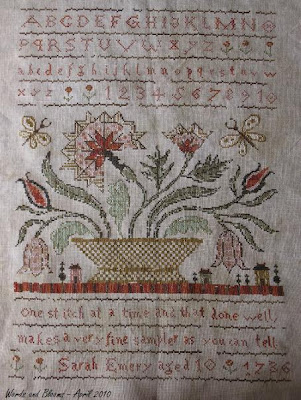 ABCDEFGHIJKLMNO
PQRSTUVWXYZ
abcdefghijklmnopqrstuvw
xyz 12345678910
One stitch at a time and that done well,
makes a very fine sampler as you can tell
Sarah Emery aged 10 1786
Words and Blooms - April 2010